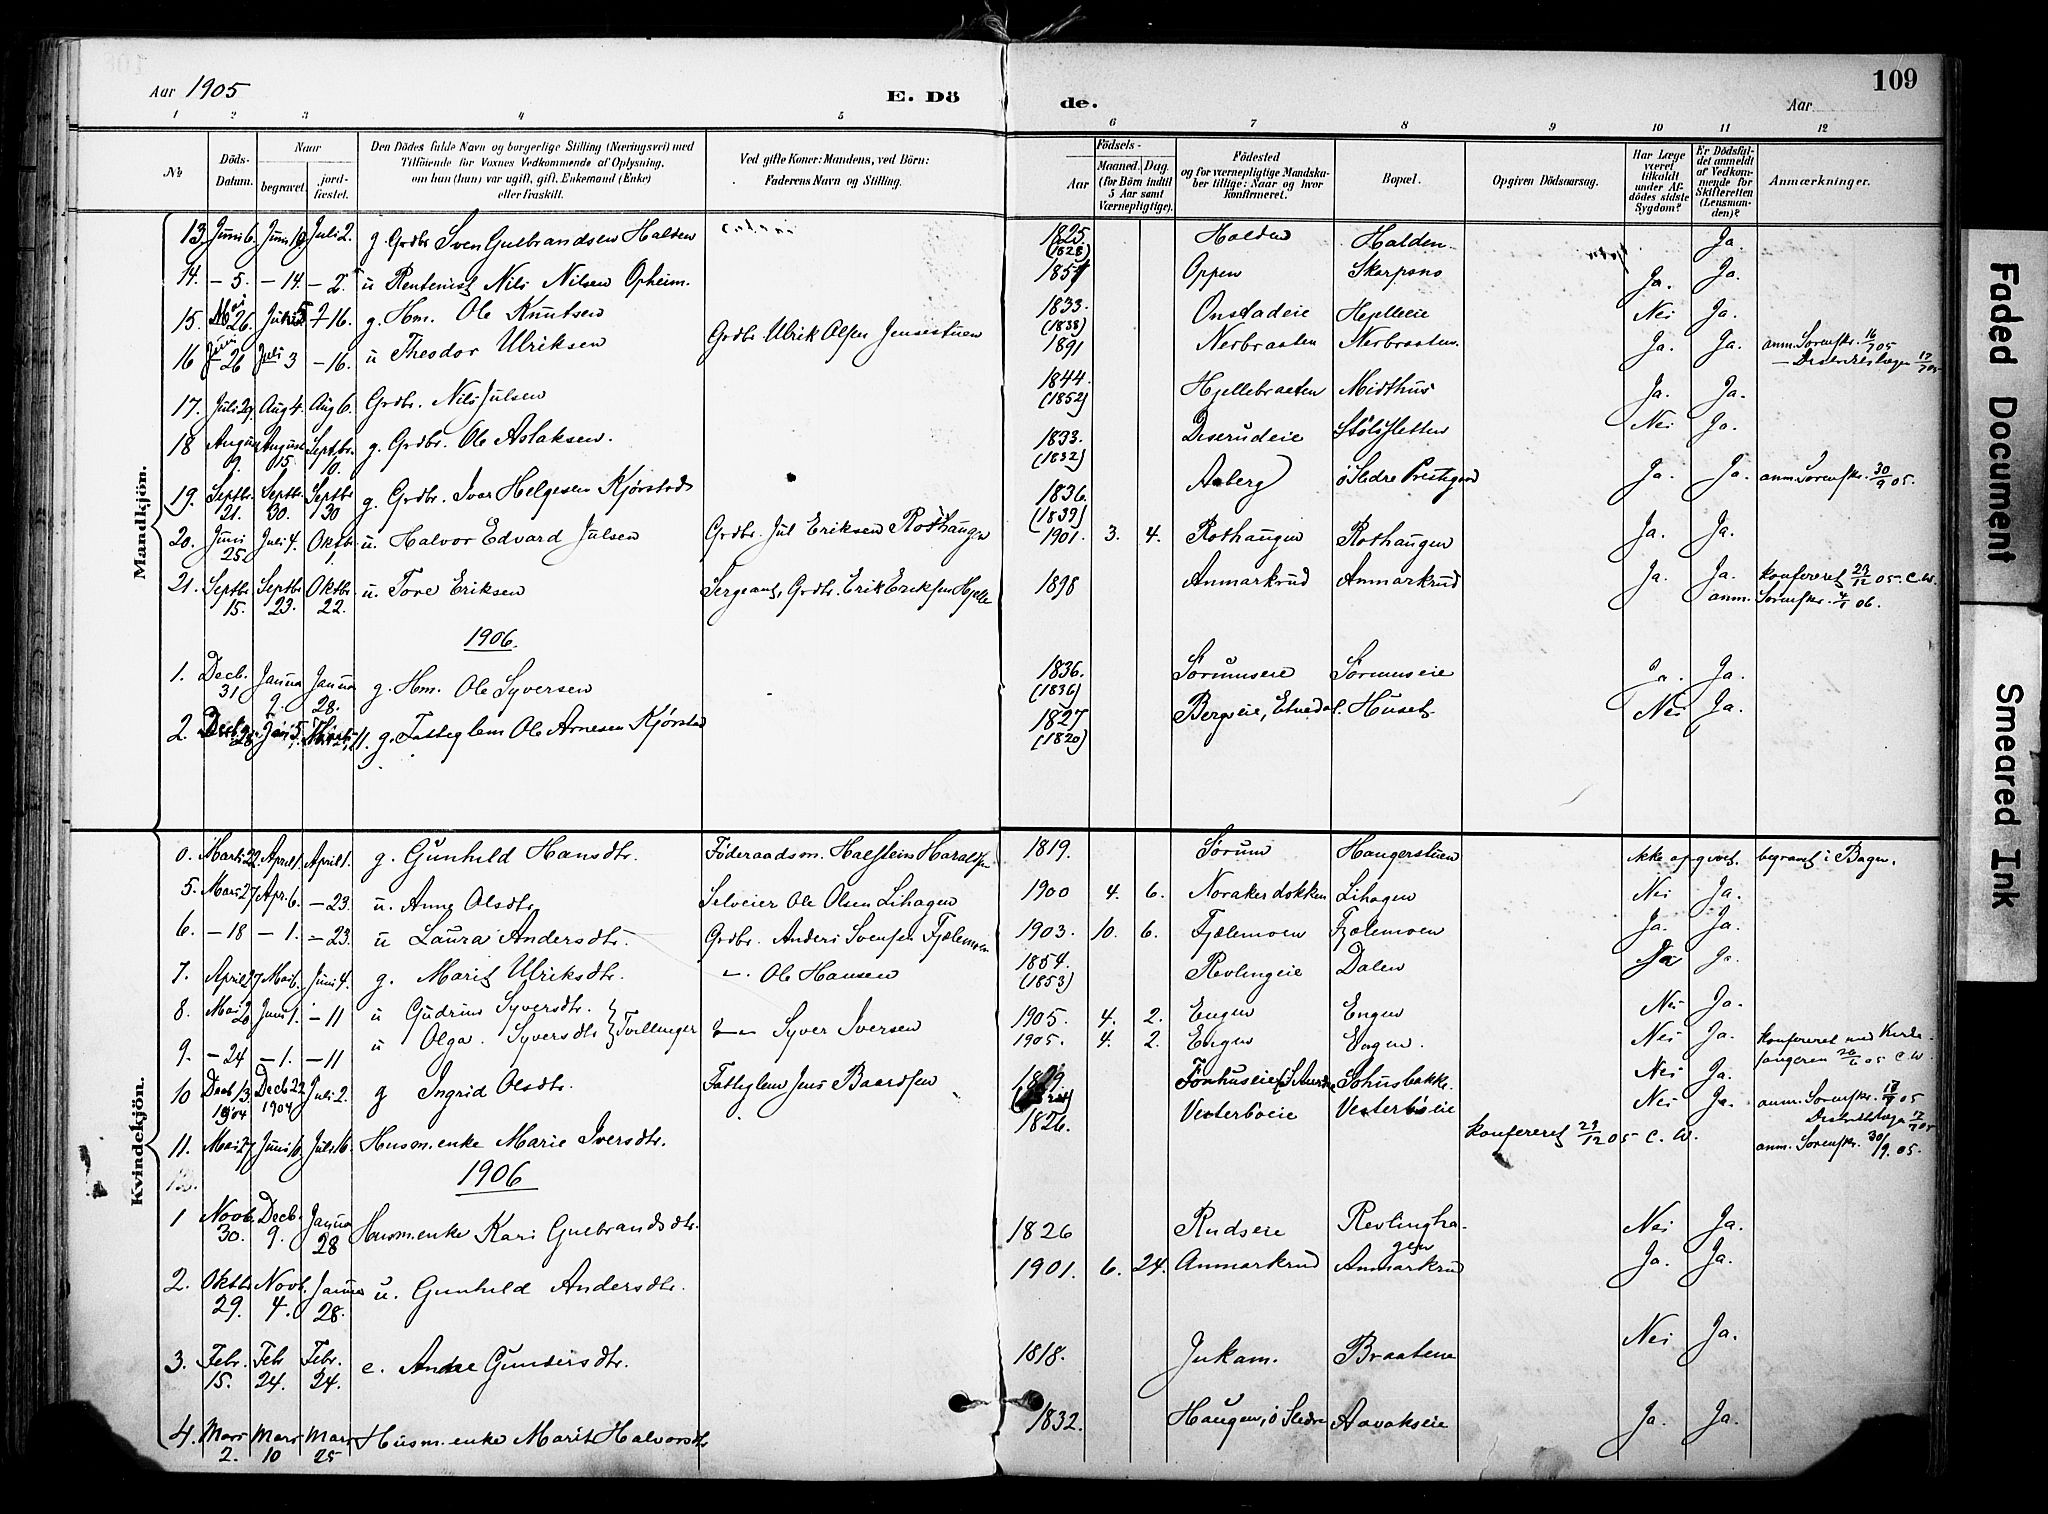 109
Aar 1905
E. Dö
de.
Aar
1 2 3 4 5 6 7 8 9 10 11 12
№ Döds-Datum. Naar begravet. jord-fæstet. Den Dödes fulde Navn og borgerlige Stilling (Næringsvei) med Tilföiende for Voxnes Vedkommende af Oplysning, om han (hun) var ugift, gift, Enkemand (Enke) eller fraskilt. Ved gifte Koner: Mandens, ved Börn: Faderens Navn og Stilling. Födsels- Aar Maaned. Dag. (for Börn indtil 5 Aar samt Værnepligtige). Födested og for værnepligtige Mandskaber tillige: Naar og hvor konfirmeret. Bopæl. Opgiven Dödsaarsag. Har Læge været tilkaldt under Afdödes sidste Sygdom? Er Dödsfaldet anmeldt af Vedkommende for Skifteretten (Lensmanden)? Anmærkninger.
Mandkjön.
13 Juni 6. Juni 19 Juli 2. g. Grdbr Sven Gulbrandsen Halden 1825 (1828) Halden Halden Ja.
14. – 5. – 14. – 2. u Rentenist Nils Nilsen Opheim. 1857 Oppen Skarpsno Ja. Ja.
15. Mai 26. Juni 5 – 16. g. Hm. Ole Knutsen 1833. (1838) Onstadeie Hejelleie Nei Ja.
16 Juni 26 Juli 3 – 16. u Theodor Ulriksen Grdbr Ulrik Olsen Jensestuen 1891 Nerbraaten Nerbraaten Ja. Ja. anm. Sorenskr. 16/7 05 – Distriktslægen 17/7 05
17. Juli 29 Aug 4. Aug 6. Grdbr. Nils Julsen 1844. (1852) Hjellebraaten Midthus Ja. Ja.
18 August 9. August 15. Septbr. 10. g. Grdbr. Ole Aslaksen. 1833. (1832) Diserudeie Stölsletten Nei Ja.
19. Septbr. 21. Septbr. 30. Septbr 30 g. Grdbr. Iver Helgesen Kjørstad 1836. (1839) Aaberg ö Slidre Prestgaard Ja. Ja. anm. Sorenskr. 30/9 05.
20. Juni 25 Juli 4. Oktbr 1. u. Halvor Edvard Julsen Grdbr. Jul Eriksen Rothaugen 1901. 3. 4. Rothaugen Rothaugen Ja. Ja.
21. Septbr 15. Septbr 23. Oktbr 22. u. Tore Eriksen Sergeant, Grdbr. Erik Eriksen Hjelle 1898 Anmarkrud Anmarkrud Ja. Ja. konfereret 29/12 05. C.W.
anm. Sorenskr. 4/1 06.
1906.
1. Decb. 31 Janua 2. Janua 28. g. Hm. Ole Syversen 1836. (1836) Sørumseie Sørumseie Ja.
2. Decbr 28 Jan 5. g. Fattiglem Ole Arnesen Kjørstad 1827 (1820) Bergseie, Etnedal. Huset Nei Ja.
Kvindekjön.
0. Marts 22. April 1. April 1. g. Gunhild Hansdtr. Føderaadsm. Halstein Haraldsen 1819. Sørum Haugerstuen ikke opgivet. begravet i Bagn.
5. Mars 27 Apr. 6. – 23. u. Anne Olsdtr Selveier Ole Olsen Lihagen 1900 4. 6. Noraker dokken Lihagen Nei Ja.
6. – 18 – 1. – 23. u Laura Andersdtr. Grdbr. Anders Svensen Fjælemoen 1903. 10. 6. Fjælemoen Fjælemoen Ja. Ja.
7. April 27 Mai 6. Juni 4. g. Marit Ulriksdtr. – Ole Hansen 1854. (1853) Revlingeie Dalen Ja Ja.
8. Mai 20 Juni 1. – 11 u Gudrun Syversdtr. } Tvillinger – Syver Iversen 1905. 4. 2. Engen Engen Nei Ja.
9. – 24 – 1. – 11 u Olga. Syversdtr 1905. 4. 2. Engen Engen. Nei Ja. konfereret med Kirkesangeren 20/6 05 C.W.
10 Decb 13. 1904 Decb 22 1904 Juli 2. g Ingrid Olsdtr. Fattiglem Jens Baardsen Fönhuseie (S. Aurdal Sohusbakke. Nei Ja.
11. Mai 27 Juni 16. Juli 16. Husm.enke Marie Iversdtr. 1826. Vesterböeie Vesterböeie Nei Ja. anm. Sorenskr. 17/7 05
Distriktslæge 17/7 05
konfereret 29/12 05 C.W.
anm. Sorenskr. 30/9. 05.
1906
1 Novb. 30. Decb. 9. Janua 28 Husm.enke Kari Gulbrandsdtr. 1826 Rudseie Revlinghagen Nei Ja.
2. Oktbr 29. Novb. 4. Janua 28. u. Gunhild Andersdtr. 1901. 6. 24. Anmarkrud Anmarkrud Ja. Ja.
3. Febr. 15. Febr 24. Febr. 24. e. Andre Gundersdtr. 1818. Jukam. Braatene Nei Ja.
4. Mars 2. Mars 10 Mars 25 Husm.enke Marit Halvorsdtr 1832. Haugen, ö Slidre Aavokseie Ja. Ja.
Faded Document
Smeared Ink